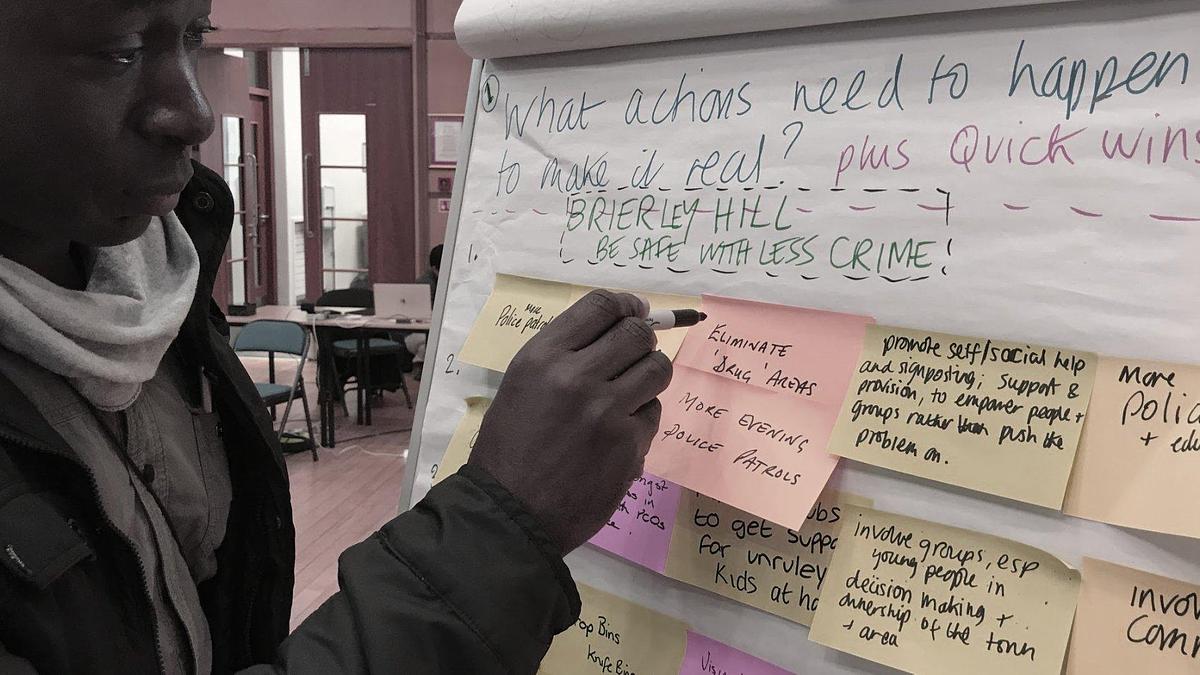 1
What actions need to happen
to make it real? plus Quick wins
BRIERLEY HILL
BE SAFE WITH LESS CRIME
1.
2.
more
Police patrol
ELIMINATE
'DRUG' AREAS
MORE EVENING
POLICE PATROLS
promote self/social help
and signposting; support &
provision, to empower people +
groups rather than push the
problem on.
More
Polic
+ edu
to get suppo
for unruley
Kids at ho
involve groups, esp
young people in
decision making +
ownership of the town
+ area
Invol
Com
op Bins
Knife Bins